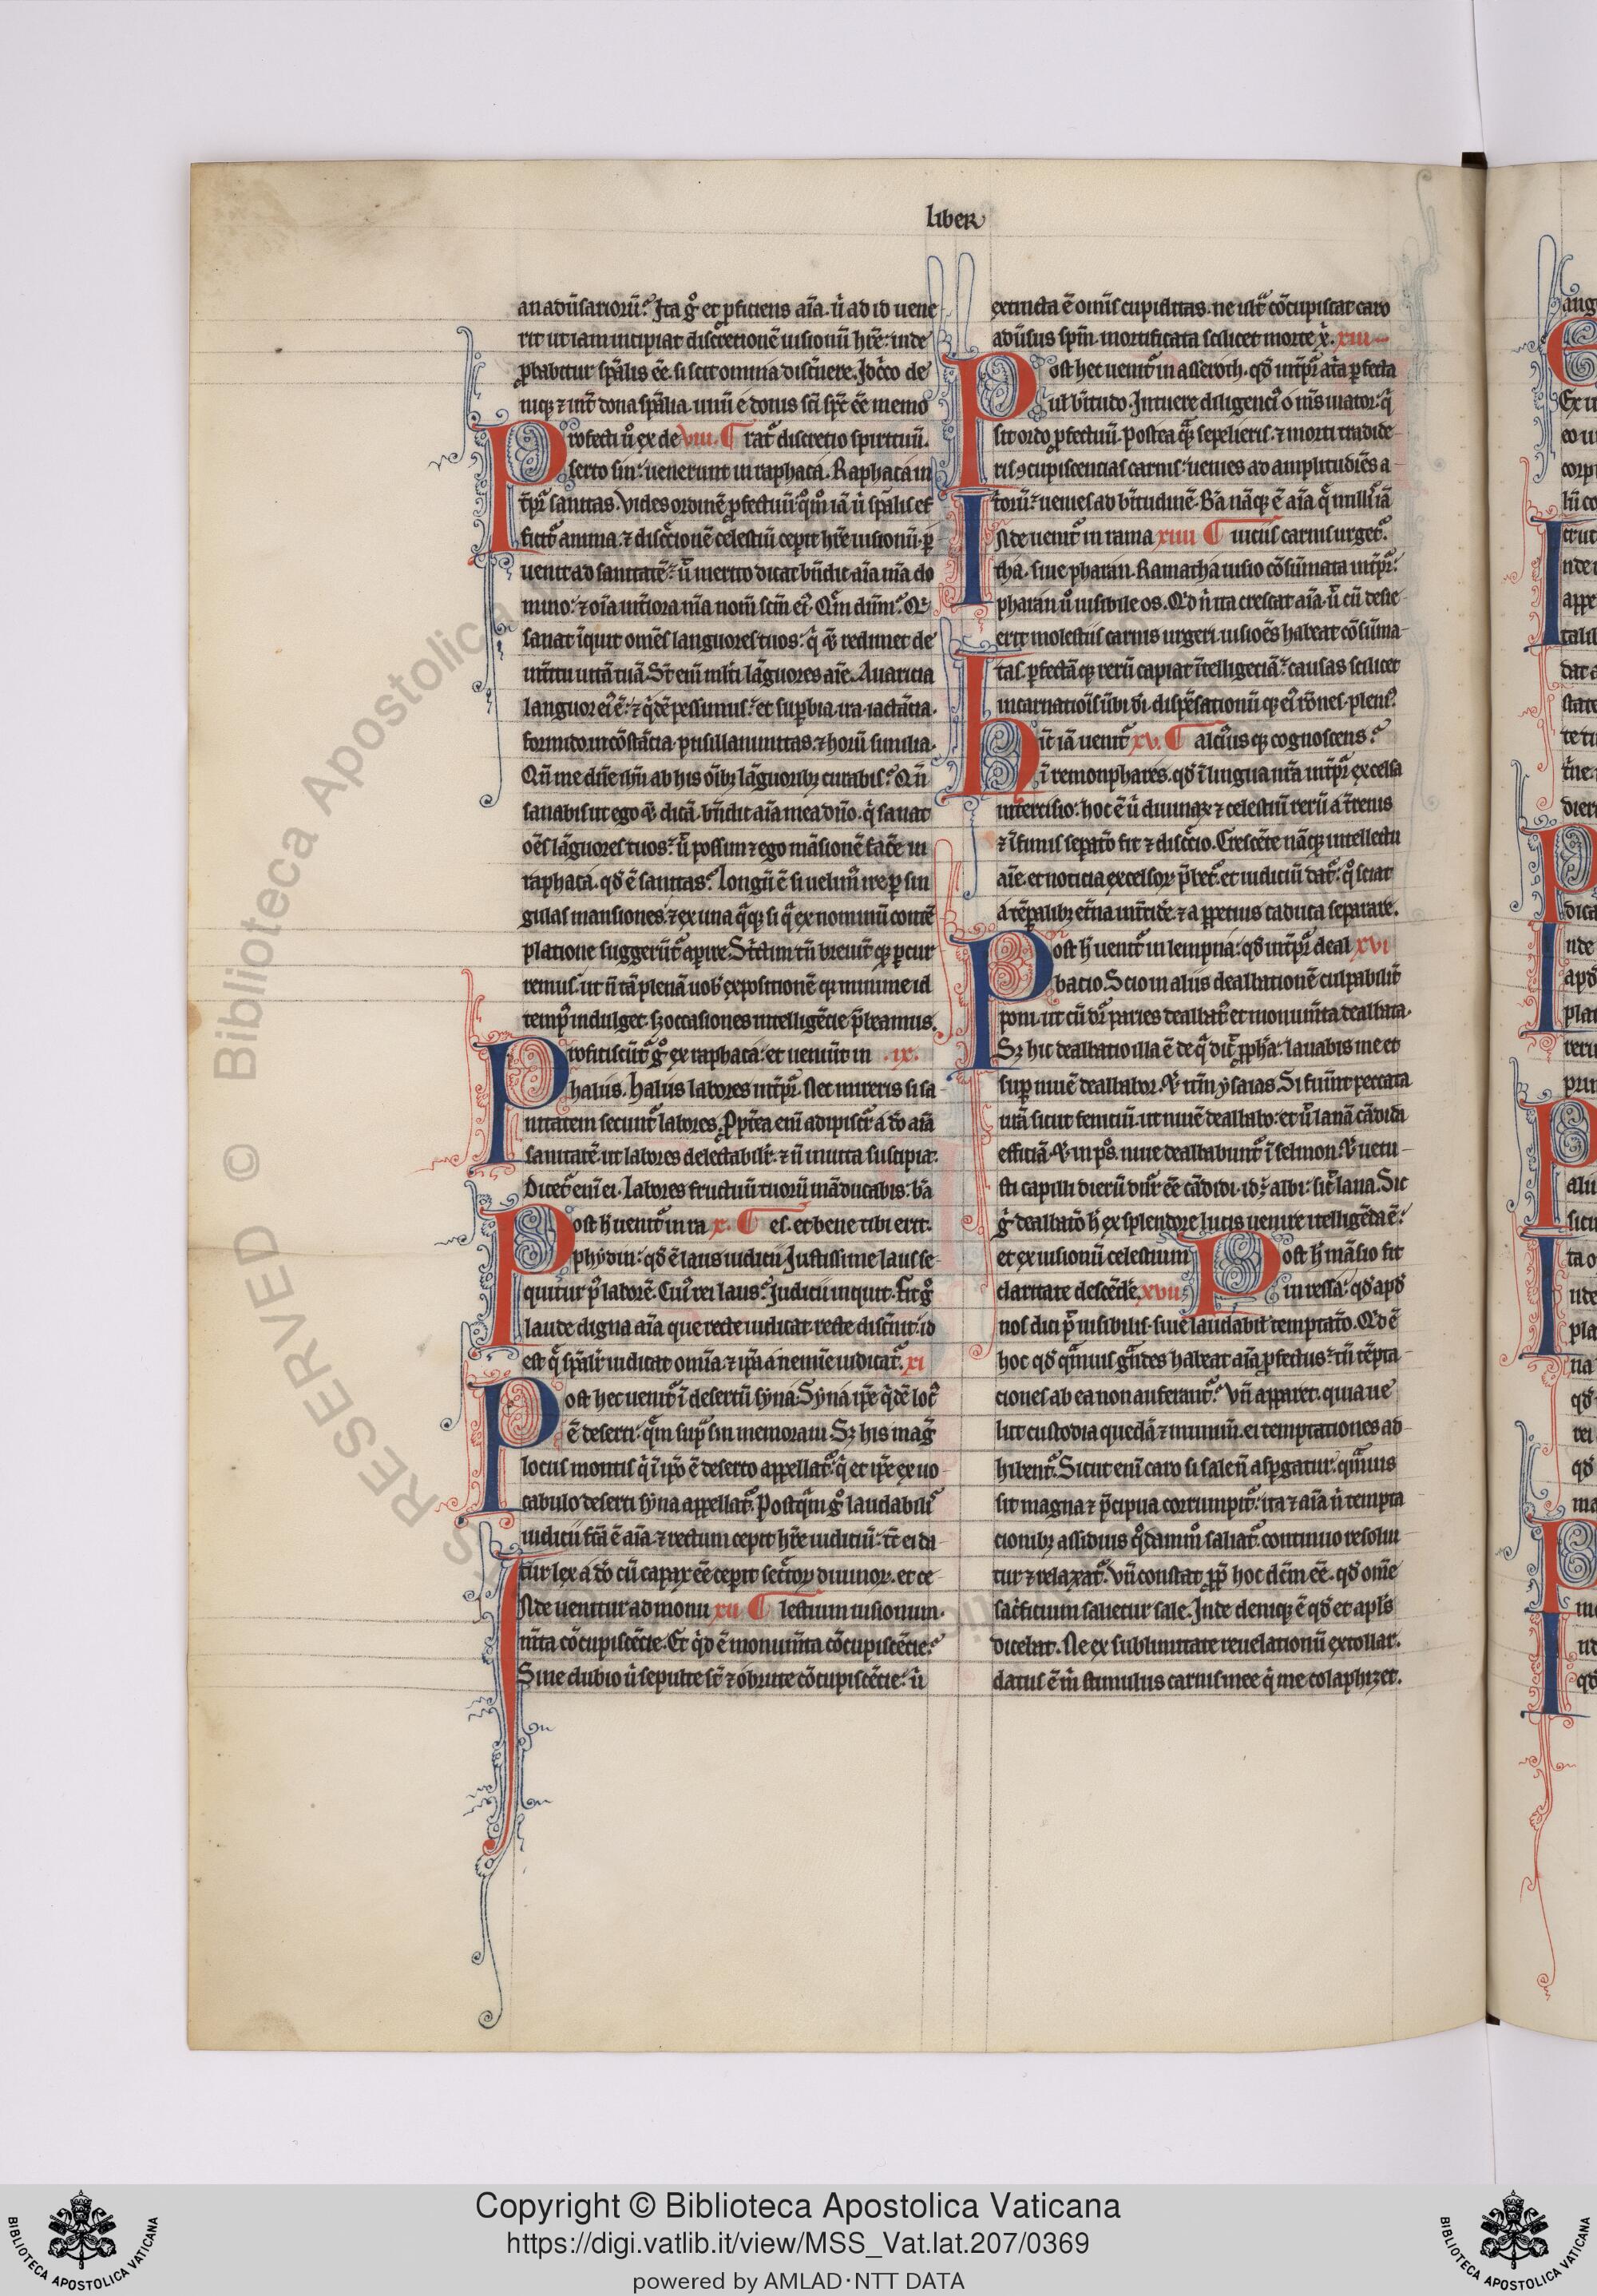 liber
an adūsarioū. Ita g̊ et ꝓficiens aīa. ū ad id uene
rit ut iam incipiat discretionē uisionū hr̄e: inde
ꝓbabitur spālis eē. si scit omnia discn̄ere. Idcc̄o de
niqꝫ ⁊ int̄ dona spālia. unū e donis sc̄i sp̄c eē memo
Profecti ū ex de viii. rat̄ discretio spirituū.
serto sin: uenerunt in raphaca. Raphaca in
t̄pr̄ sanitas. Vides ordinē ꝓfectuū: qm̊ iā ū spālis ef
ficit̄ anima. ⁊ discc̄ionē celestiū cepit hr̄e uisionū. ꝑ
uenit ad sanitatē: ut̄ merito dicat bn̄dic aīa mā do
mino: ⁊ oīa int̄iora mā nom̄ scm̄ ei᷒. Qm̄ dūm᷒. Qi
sanat īquit omēs languores tuos: q̄ qͥ redimet de
int̄itu uitā tuā. St̄ eni ml̄ti lāguores aīe. Auaricia
languor ei᷒ ē: ⁊ qͥdē pessimus. et suꝑbia. ira. iactācia.
formido. incōstācia. pusillanimitas. ⁊ horū similia.
Qn̄ me dn̄e ih̄u ab his oībꝫ lāguoribꝫ curabis? Qn̄
sanabis ut ego qͥ dicā. bn̄dic aīa mea dn̄o. qͥ sanat
oēs lāguores tuos: ut̄ possim ⁊ ego māsionē facē in
raphaca. qd̄ ē sanitas? Longū ē si uelim᷒ ire ꝑ sin
gulas mansiones. ⁊ ex una qͣqꝫ si qͣ ex nominū contē
platione suggerūt᷒ aꝑire. St̄ctim tn̄ breuit᷒ qꝫ ꝑcur
remus. ut n̄ tā plenā uob᷒ expositionē qꝫ minime id
temp᷒ indulget. sꝫ occasiones intelligēcie p̄beamus.
Proficiscūt᷒ g̊ ex raphaca: et ueniūt in .ix.
halus. halus labores int̄pr̄. Nec mireris si sa
nitatem secunt᷒ labores. Pp̄tea eni adipiscit᷒ a do̅ aīa
sanitatē. ut labores delectabilit᷒ ⁊ n̄ inuita suscipiat.
Dicet᷒ eni ei. Labores fructuū tuorū māducabis: bā
Post h̄ uenit᷒ in ra x. es. et bene tibi erit.
phydin: qd̄ ē laus iudicii. Iustissime laus se
quitur pꝰ laborē. Cui᷒ rei laus? Iudicii inquit. Fit g̊
laude digna aīa que recte iudicat. recte discn̄it: id
est qͥ spālit᷒ iudicat omīa: ⁊ ip̄a a nemīe iudicat᷒. xi
Post hec uenit᷒ ī desertū syna. Syna ip̄e qͥdē loc᷒
ē deserti: qm̄ supͣ sin memoraui. Sꝫ his mag᷒
locus montis qͥ ī ip̄o ē deserto appellat᷒. qͥ et ip̄e ex uo
cabulo deserti syna appellat᷒. Postqͣm g̊ laudabilis
iudicii fcā ē aīa. ⁊ rectum cepit hr̄e iudiciū: tc̄ ei da
tur lex a do̅ cū capax eē cepit secc̄toꝝ diuinoꝝ. et ce
Inde uenitur ad monu xii lestium uisionum.
mīta cōcupiscēcie. Et qͥd ē monumīta cōcupiscēcie?
Sine dubio ū sepulte st̄ ⁊ obrute cōcupiscēcie: ū
extincta ē omīs cupiditas. ne ult᷒ cōcupiscat caro
adūsus spm̄. mortificata scilicet morte x̄. xiii
Post hec uenit᷒ in asseroth. qd̄ int̄pr̄ atͥa ꝑfecta
uel bt̄itudo. Intuere diligenci᷒ o uīs uiator: qͥ
sit ordo ꝓfectuū. Postea qͣ sepelieris. ⁊ morti tradide
ris ꝯcupiscencias carnis: uenies ad amplitudiēs a
trioꝝ: uenies ad bt̄itudinē. Bā nāqꝫ ē aīa qͣ nullis iā
Inde uenit᷒ in rama xiiii uiciis carnis urget᷒.
tha. siue pharan. Ramatha uisio cōsūmata int̄pr̄.
pharan ū uisibile os. Qͥd n̄ ita crescat aīa. ut̄ cū desie
erit molestiis carnis urgeri. uisiōēs habeat cōsūma
tas. ꝑfectāqꝫ rerū capiat ītelligēciā: causas scilicet
incarnatiōīs ūbi di. dispēsationū qꝫ ei᷒ rōnes. plenī᷒
hīc iā uenit᷒ xv. alci᷒us qꝫ cognoscens.
ī remonphares. qd̄ ī lingua mā int̄pr̄ excelsa
intercisio: hoc ē ū diuinaꝝ ⁊ celestiū rerū a t̄renis
⁊ īfimis separat᷒o fit ⁊ discc̄io. Crescēte nāqꝫ intellectu
aīe. et noticia excelsoꝝ p̄bet᷒. et iudiciū dat᷒: qͦ sciat
a tēꝑalibꝫ et̄na int̄cidē. ⁊ a ꝑpetuis caduca separare.
Post h̄ uenit᷒ in lempna: qd̄ int̄pr̄ deal xvi
bacio. Scio in aliis dealbationē culpabilit᷒
poni. ut cū dr̄ paries dealbat᷒ et monumīta dealbata.
Sꝫ hic dealbatio illa ē de qͣ dic᷒ ꝓph̄a: lauabis me et
suꝑ niuē dealbabor. Et itm̄ ysaias. Si fuīnt peccata
urā sicut feniciū. ut niuē dealbabo: et ut̄ lanā cādidā
efficiā. Et in ps̄. niue dealbabunt᷒ ī selmon. Et uetu
sti capilli dierū dnr̄ eē cādidi. id᷒ albi: sic᷒ lana. Sic
g̊ dealbat᷒o h̄ ex splendore lucis uenire ītelligēda ē:
et ex uisionū celestium Post h̄ māsio fit
claritate descēdē. xvii in ressa: qd̄ apd̄
nos dici pt̄ uisibilis. siue laudabil᷒ temptat᷒o. Qͥd ē
hoc qd̄ qͣmuis gͣndes habeat aīa ꝓfectus: tn̄ tēpta
ciones ab ea non auferant᷒? Vn̄ apparet. quia ue
lut custodia quedā ⁊ munim̄. ei temptationes ad
hibent᷒. Sicut eni caro si sale n̄ asꝑgatur: qͣmuis
sit magna ⁊ p̄cipua corrumpit᷒: ita ⁊ aīa n̄ tempta
cionibꝫ assiduis qͦdammͦ saliat᷒. continuo resolui
tur ⁊ relaxat᷒. Vn̄ constat ꝓp̄ hoc dcm̄ eē. qd̄ om̄e
sacͥficium salietur sale. Inde deniqꝫ ē qd̄ et apl̄s
dicebat. Ne ex sublimitate reuelationū extollar.
datus ē m̄ stimulus carnis mee qͥ me colaphizet.
Copyright © Biblioteca Apostolica Vaticana
https://digi.vatlib.it/view/MSS_Vat.lat.207/0369
powered by AMLAD·NTT DATA
BIBLIOTECA APOSTOLICA VATICANA
BIBLIOTECA APOSTOLICA VATICANA